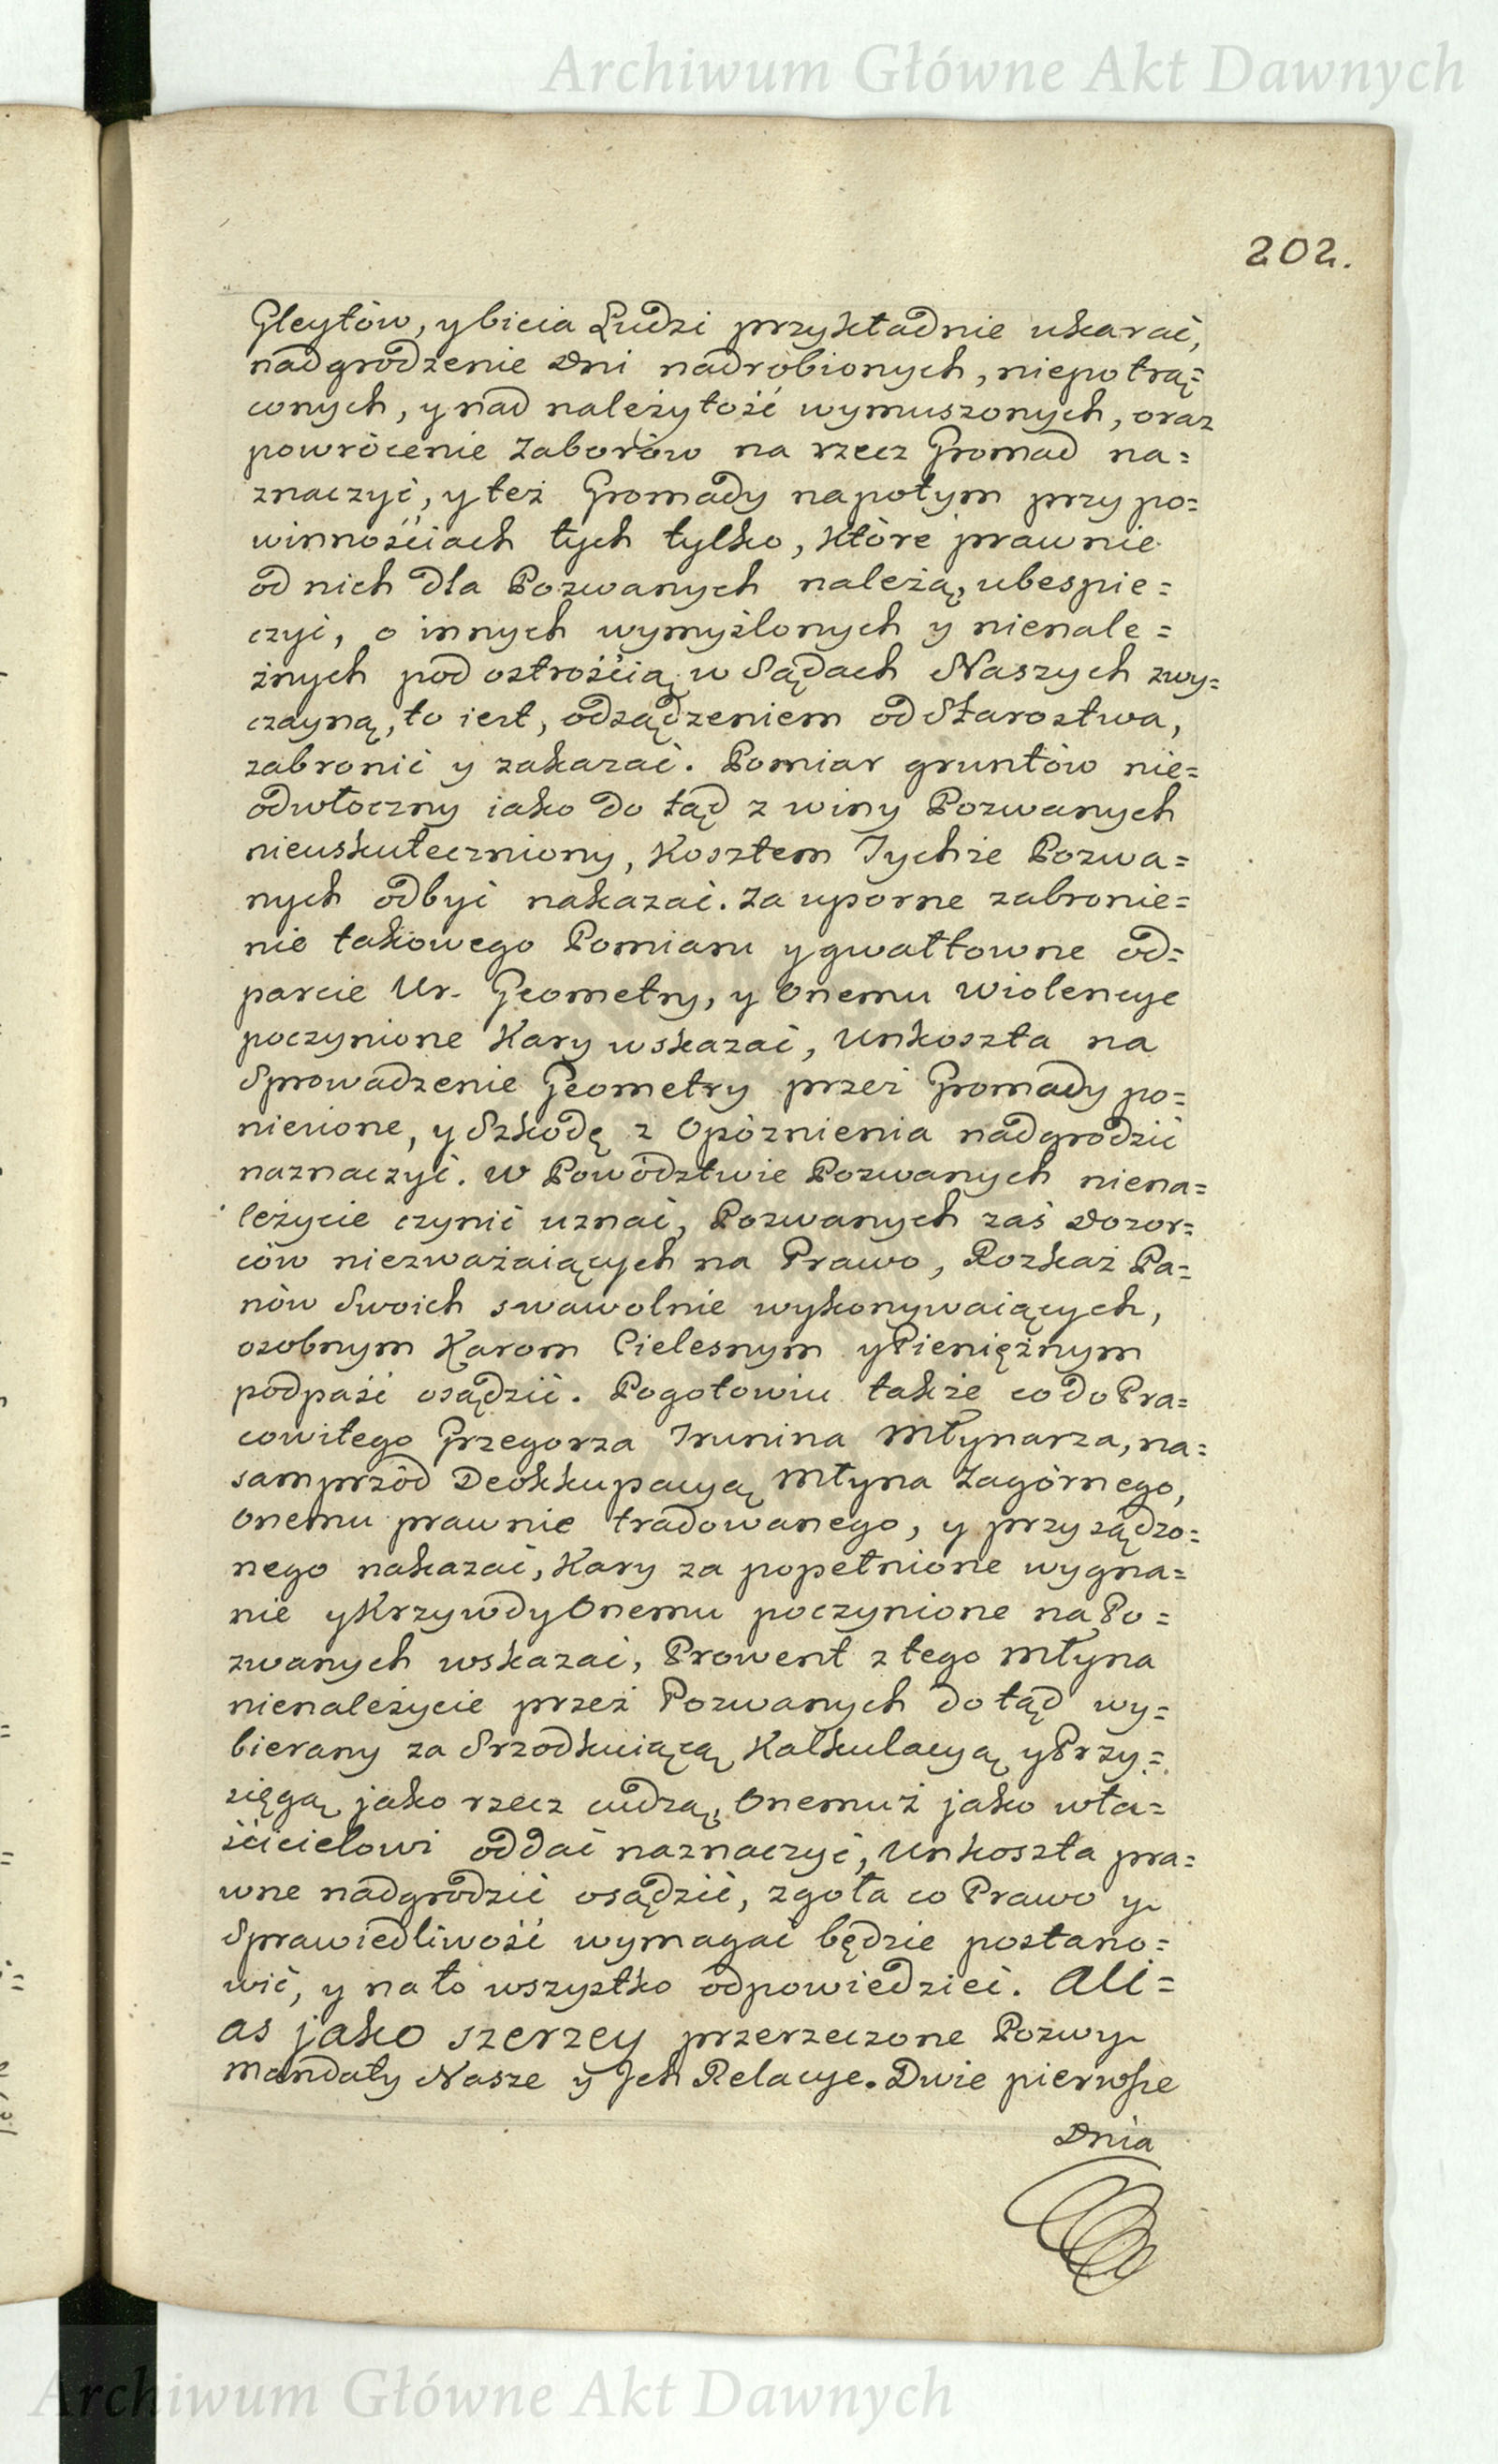 Archiwum Główne Akt Dawnych
202.
Gleytów, y bicia Ludzi przykładnie ukarać,
nadgrodzenie Dni nadrobionych, niepotrą=
conych, y nad należytość wymuszonych, oraz
powrócenie Zaborów na rzecz Gromad na=
znaczyć, y też Gromady napotym przy po=
winnościach tych tylko, które prawnie
od nich dla Pozwanych należą, ubespie=
czyć, o innych wymyślonych y nienale=
żnych pod ostrością w Sądach Naszych zwy=
czayną, to iest, odsądzeniem od Starostwa,
zabronić y zakazać. Pomiar gruntów nie=
odwłoczny iako do tąd z winy Pozwanych
nieuskuteczniony, Kosztem Tychże Pozwa=
nych odbyć nakazać. Za uporne zabronie=
nie takowego Pomiaru y gwałtowne od=
parcie Ur. Geometry, y Onemu Wiolencye
poczynione Kary wskazać, Unkoszta na
Sprowadzenie Geometry przez Gromady po=
niesione, y Szkodę z Opóznienia nadgrodzić
naznaczyć. W Powództwie Pozwanych niena=
leżycie czynić uznać, Pozwanych zaś Dozor=
ców niezważaiących na Prawo, Rozkaz Pa=
nów Swoich swawolnie wykonywaiących,
osobnym Karom Cielesnym y Pieniężnym
podpaść osądzić. Pogotowiu także co do Pra=
cowitego Grzegorza Trunina Młynarza, na=
samprzód Deokkupacyą Młyna Zagórnego,
Onemu prawnie tradowanego, y przysądzo=
nego nakazać, Kary za popełnione wygna=
nie y Krzywdy Onemu poczynione na Po=
zwanych wskazać, Prowent z tego Młyna
nienależycie przez Pozwanych do tąd wy=
bierany za Srzodkuiącą Kalkulacyą y Przy=
sięgą jako rzecz cudzą, Onemuż jako wła=
ścicielowi oddać naznaczyć, Unkoszta pra=
wne nadgrodzić osądzić, zgoła co Prawo y
Sprawiedliwość wymagać będzie postano=
wić, y na to wszystko odpowiedzieć. Ali=
as jako szerzey przerzeczone Pozwy
Mandaty Nasze y Jch Relacye. Dwie pierwsze
Dnia
Archiwum Główne Akt Dawnych